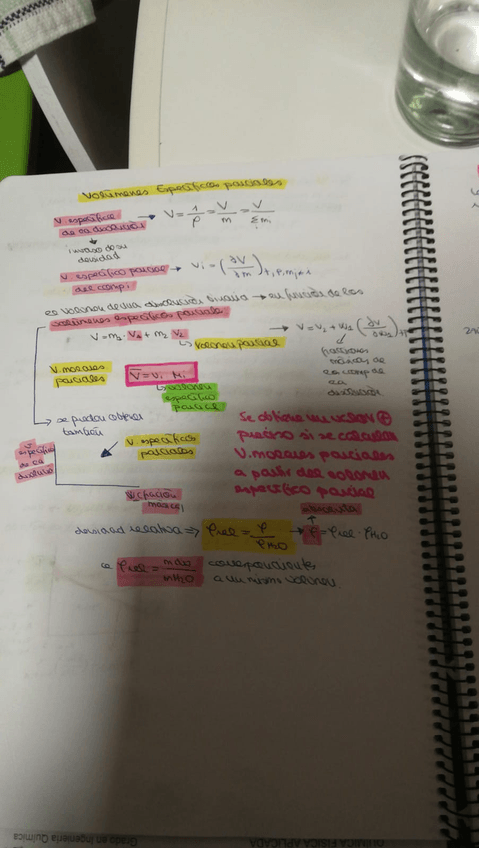 Volúmenes Específicos parciales
V. específico de la disolución → V = 1/ρ = V/m = V/Σmi
inverso de su densidad
V. específico parcial del comp.i → Vi = (∂V/∂m) T, P, mj≠i
el volumen de una disolución binaria → en función de los
volúmenes específicos parciales
V = m1 · V1 + m2 V2
↳ volumen parcial
→ V = V2 + w1 (∂V/∂w1)
fracciones másicas de los comp de la disolución
V. molares parciales
V̅ = vi Mi
↳ volumen específico parcial
→ se pueden obtener también
V. específicos parciales
V específico de la disoluc
V fracción másica
Se obtiene un valor ⊕
preciso si se calculan
V. molares parciales
a partir del volumen
específico parcial
absoluta
densidad relativa => ρrel = ρ/ρH2O → ρ = ρrel · ρH2O
la ρrel = m dis/mH2O correspondientes
a un mismo volumen.
Grado en Ingeniería Química
QUÍMICA FÍSICA APLICADA